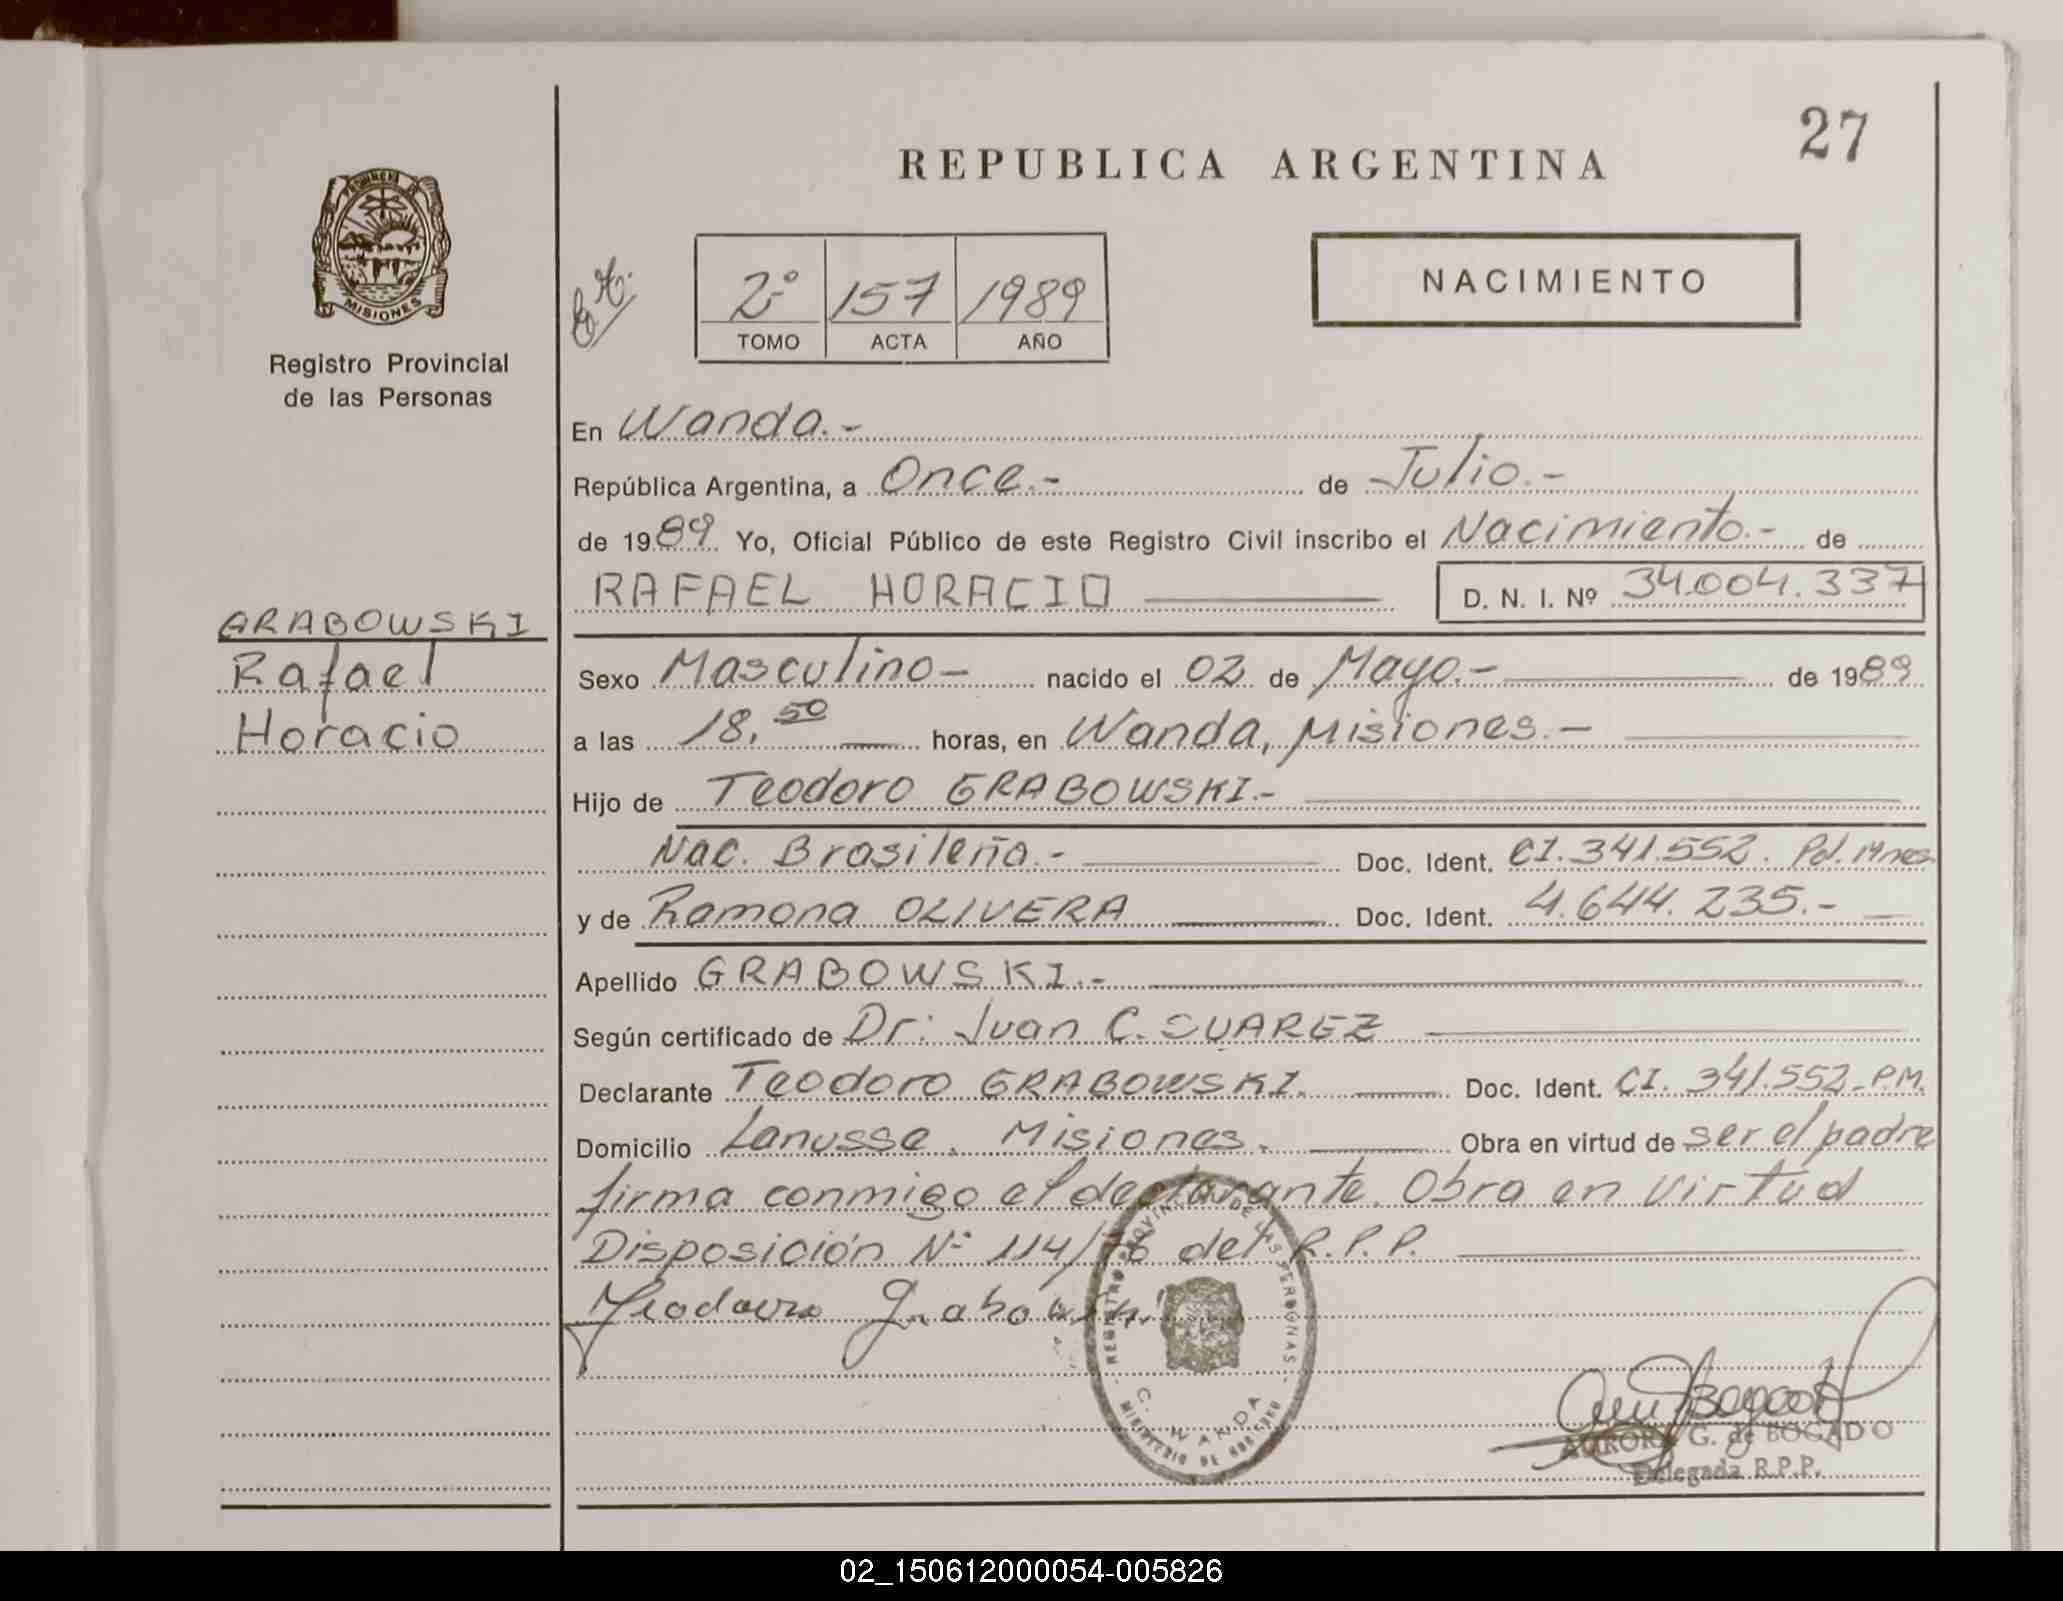 27
REPUBLICA ARGENTINA
PROVINCIA DE
MISIONES
Registro Provincial
de las Personas
2º 157 1989
TOMO ACTA AÑO
NACIMIENTO
En Wanda.-
República Argentina, a Once.- de Julio.-
de 1989. Yo, Oficial Público de este Registro Civil inscribo el Nacimiento.- de
RAFAEL HORACIO D. N. I. Nº 34.004.337
GRABOWSKI
Rafael
Horacio
Sexo Masculino- nacido el 02 de Mayo.- de 1989
a las 18,50 horas, en Wanda, Misiones.-
Hijo de Teodoro GRABOWSKI.-
Nac. Brasileña.- Doc. Ident. CI.341.552. Pol. Mnes.
y de Ramona OLIVERA Doc. Ident. 4.644.235.-
Apellido GRABOWSKI.-
Según certificado de Dr: Juan C. SUAREZ
Declarante Teodoro GRABOWSKI. Doc. Ident. CI. 341.552-P.M.
Domicilio Lanusse, Misiones. Obra en virtud de ser el padre
firma conmigo el declarante. Obra en virtud
Disposición Nº 114/ del R.P.P.
Teodoro Grabowski
REGISTRO PROVINCIAL DE LAS PERSONAS
C. WANDA
MINISTERIO DE GOBIERNO
AURORA G. de BOGADO
Delegada R.P.P.
02_150612000054-005826